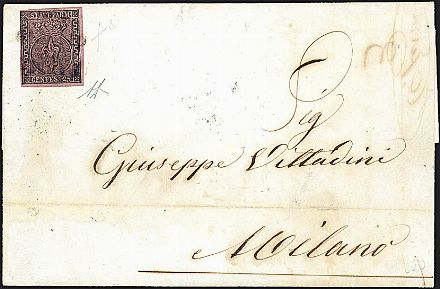 STATI PARM.
CENTES. 25
Sig
Giuseppe Vittadini
Milano